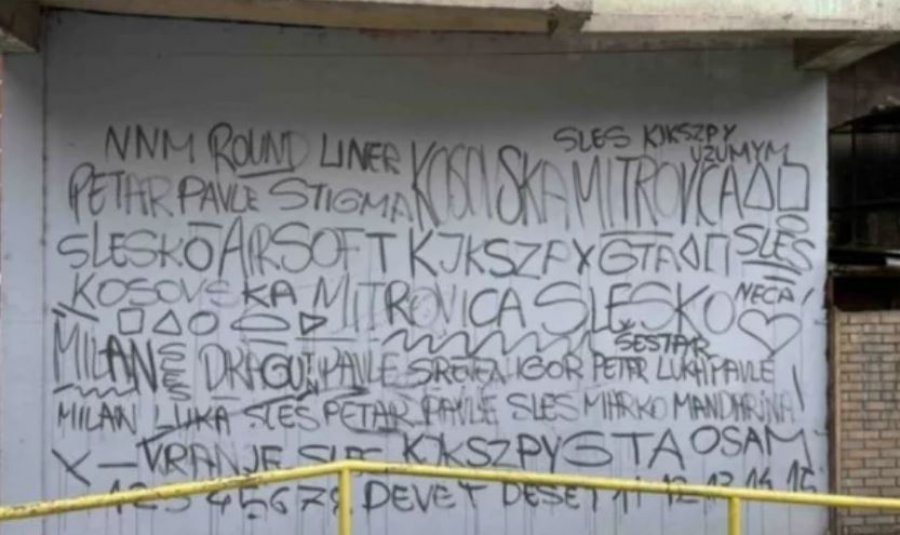 SLES KJKSZPY
NNM ROUND LINER UZUMYM
PETAR PAVLE STIGMA KOSOVSKA MITROVICA
SLESKO AIRSOFT KJKSZPY GTA SLES
KOSOVSKA MITROVICA SLESKO NECA
ŠESTAR
MILAN DRAGUTIN PAVLE SRETEN IGOR PETAR LUKA PAVLE
MILAN LUKA SLES PETAR PAVLE SLES MARKO MANDARINA
X - VRANJE SLES KJKSZPY GTA OSAM
1 2 3 4 5 6 7 8 DEVET DESET 11 12 13 14 15